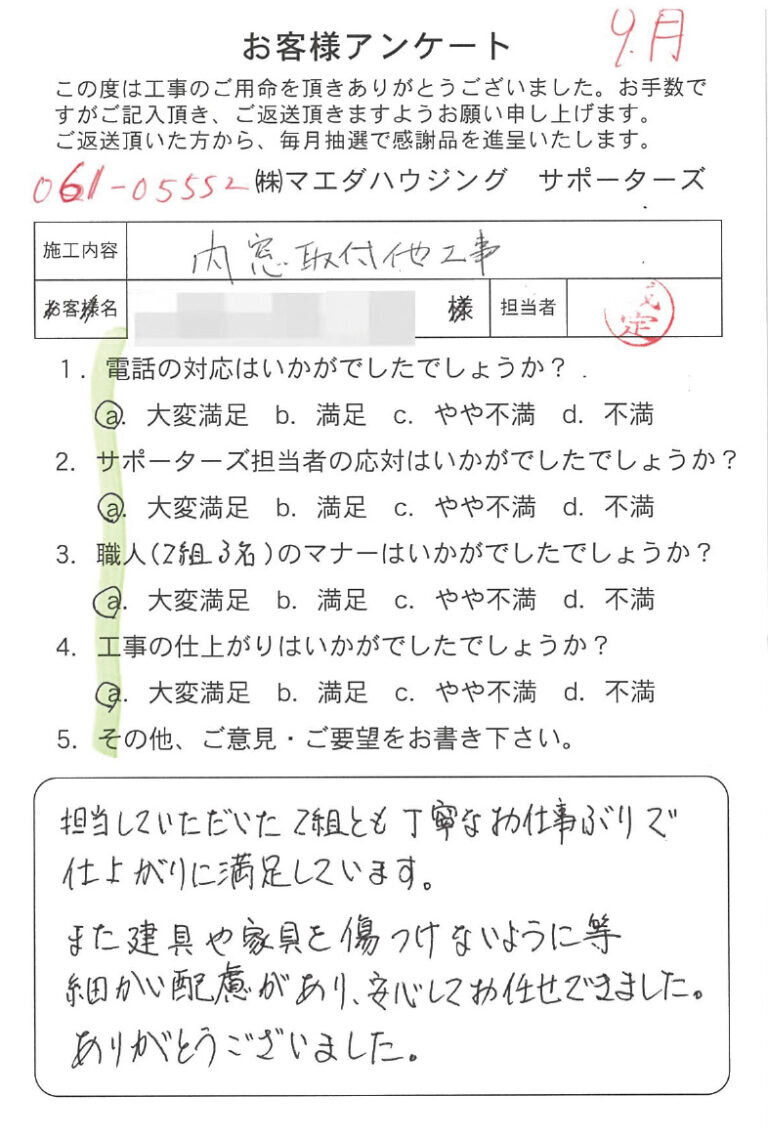 9月
お客様アンケート
この度は工事のご用命を頂きありがとうございました。お手数で
すがご記入頂き、ご返送頂きますようお願い申し上げます。
ご返送頂いた方から、毎月抽選で感謝品を進呈いたします。
061-05552 ㈱マエダハウジング サポーターズ
施工内容 内窓取付他工事
お客様名 様 担当者
1. 電話の対応はいかがでしたでしょうか?
a. 大変満足 b. 満足 c. やや不満 d. 不満
2. サポーターズ担当者の応対はいかがでしたでしょうか?
a. 大変満足 b. 満足 c. やや不満 d. 不満
3. 職人(2組3名)のマナーはいかがでしたでしょうか?
a. 大変満足 b. 満足 c. やや不満 d. 不満
4. 工事の仕上がりはいかがでしたでしょうか?
a. 大変満足 b. 満足 c. やや不満 d. 不満
5. その他、ご意見・ご要望をお書き下さい。
担当していただいた2組とも丁寧なお仕事ぶりで
仕上がりに満足しています。
また建具や家具を傷つけないように等
細かい配慮があり、安心してお任せできました。
ありがとうございました。